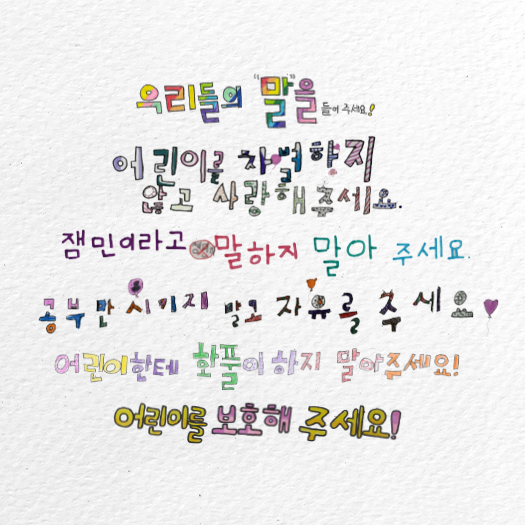 우리들의 "말"을 들어 주세요!
어린이를 차별하지
않고 사랑해주세요.
잼민이라고 말하지 말아 주세요.
공부만 시키지 말고 자유를 주세요
어린이한테 화풀이하지 말아주세요!
어린이를 보호해 주세요!